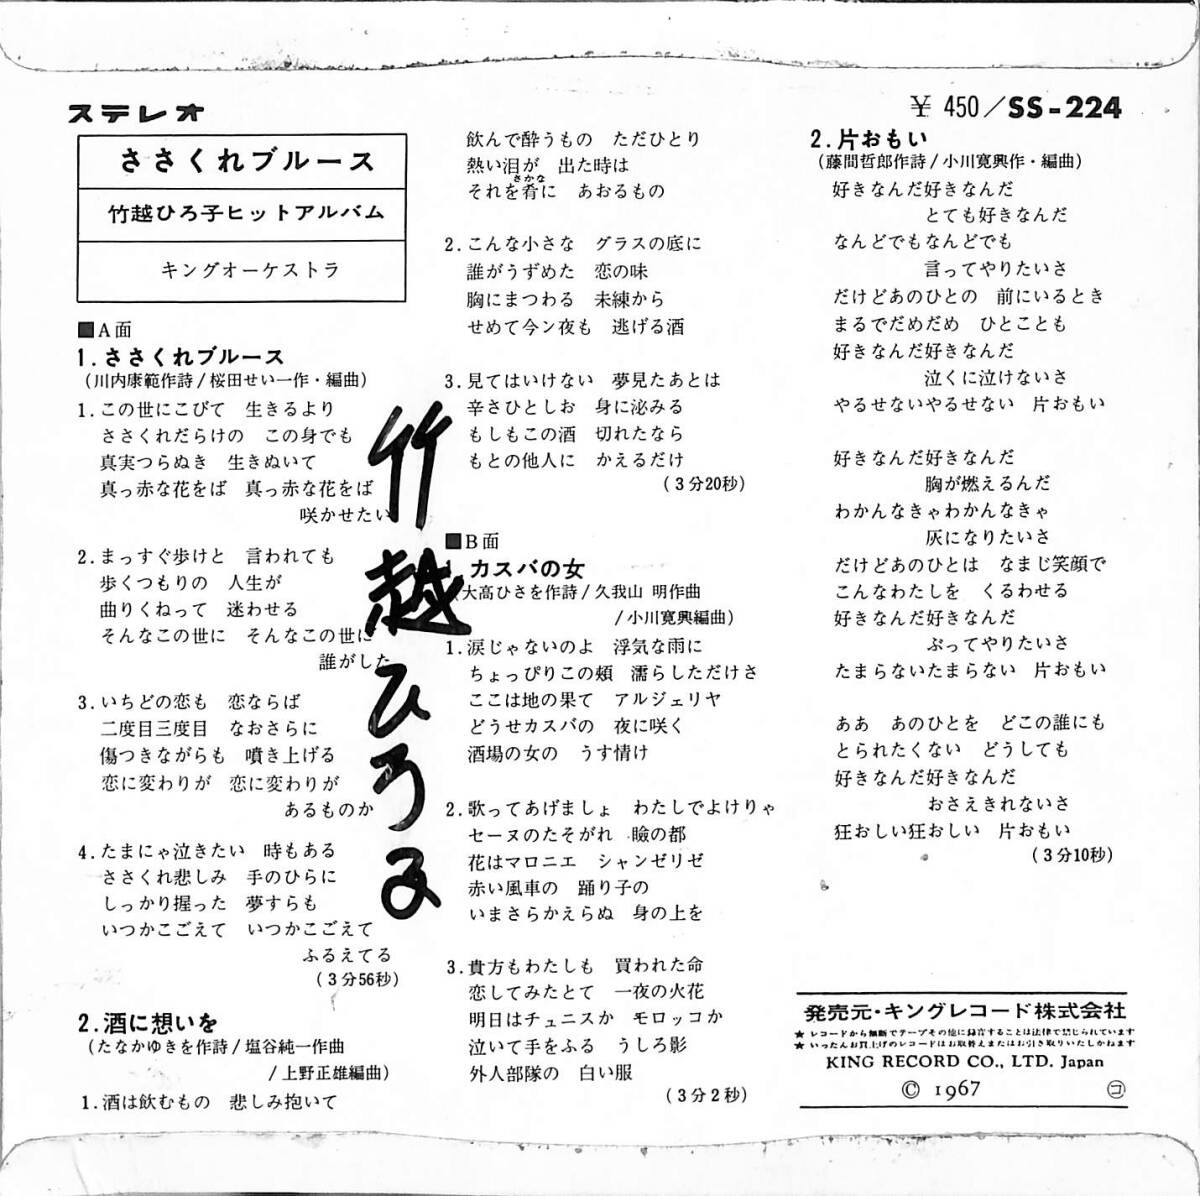 ステレオ
¥ 450/SS-224
ささくれブルース
竹越ひろ子ヒットアルバム
キングオーケストラ
■A面
1.ささくれブルース
(川内康範作詩/桜田せい一作・編曲)
1.この世にこびて 生きるより
ささくれだらけの この身でも
真実つらぬき 生きぬいて
真っ赤な花をば 真っ赤な花をば
咲かせたい
2.まっすぐ歩けと 言われても
歩くつもりの 人生が
曲りくねって 迷わせる
そんなこの世に そんなこの世に
誰がした
3.いちどの恋も 恋ならば
二度目三度目 なおさらに
傷つきながらも 噴き上げる
恋に変わりが 恋に変わりが
あるものか
4.たまにゃ泣きたい 時もある
ささくれ悲しみ 手のひらに
しっかり握った 夢すらも
いつかこごえて いつかこごえて
ふるえてる
(3分56秒)
2.酒に想いを
(たなかゆきを作詩/塩谷純一作曲
/上野正雄編曲)
1.酒は飲むもの 悲しみ抱いて
飲んで酔うもの ただひとり
熱い泪が 出た時は
さかな
それを肴に あおるもの
2.こんな小さな グラスの底に
誰がうずめた 恋の味
胸にまつわる 未練から
せめて今ン夜も 逃げる酒
3.見てはいけない 夢見たあとは
辛さひとしお 身に泌みる
もしもこの酒 切れたなら
もとの他人に かえるだけ
(3分20秒)
■B面
カスバの女
(大高ひさを作詩/久我山 明作曲
/小川寛興編曲)
1.涙じゃないのよ 浮気な雨に
ちょっぴりこの頬 濡らしただけさ
ここは地の果て アルジェリヤ
どうせカスバの 夜に咲く
酒場の女の うす情け
2.歌ってあげましょ わたしでよけりゃ
セーヌのたそがれ 瞼の都
花はマロニエ シャンゼリゼ
赤い風車の 踊り子の
いまさらかえらぬ 身の上を
3.貴方もわたしも 買われた命
恋してみたとて 一夜の火花
明日はチュニスか モロッコか
泣いて手をふる うしろ影
外人部隊の 白い服
(3分2秒)
竹越ひろ子
2.片おもい
(藤間哲郎作詩/小川寛興作・編曲)
好きなんだ好きなんだ
とても好きなんだ
なんどでもなんどでも
言ってやりたいさ
だけどあのひとの 前にいるとき
まるでだめだめ ひとことも
好きなんだ好きなんだ
泣くに泣けないさ
やるせないやるせない 片おもい
好きなんだ好きなんだ
胸が燃えるんだ
わかんなきゃわかんなきゃ
灰になりたいさ
だけどあのひとは なまじ笑顔で
こんなわたしを くるわせる
好きなんだ好きなんだ
ぶってやりたいさ
たまらないたまらない 片おもい
ああ あのひとを どこの誰にも
とられたくない どうしても
好きなんだ好きなんだ
おさえきれないさ
狂おしい狂おしい 片おもい
(3分10秒)
発売元・キングレコード株式会社
★レコードから無断でテープその他に録音することは法律で禁じられています
★いったんお買上げのレコードはお取替えまたはお引き取りいたしかねます
KING RECORD CO., LTD. Japan
© 1967 ㋙